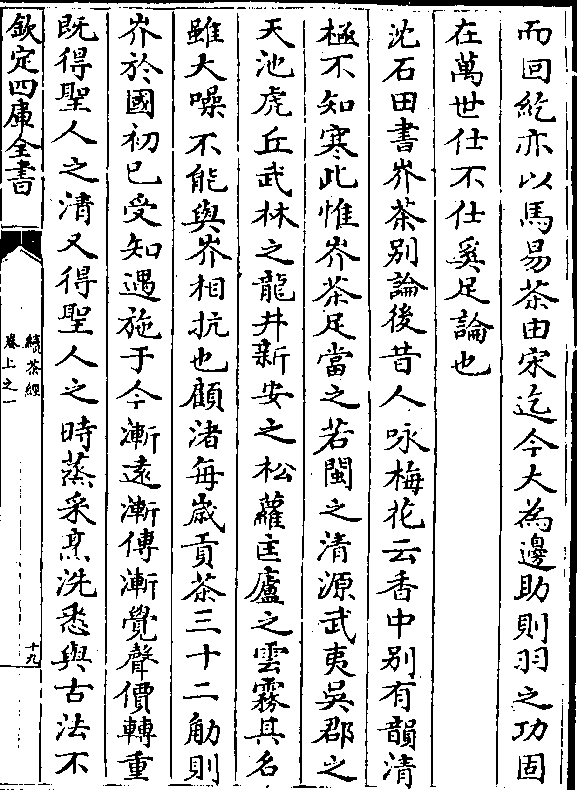 而回紇亦以馬易茶由宋迄今大為邊助則羽之功固
在萬世仕不仕奚足論也
沈石田書岕茶别論後昔人咏梅花云香中别有韻清
極不知寒此惟岕茶足當之若閩之清源武夷吳郡之
天池虎丘武林之龍井新安之松蘿匡廬之雲霧其名
雖大噪不能與岕相抗也顧渚每歲貢茶三十二觔則
岕於國初已受知遇施于今漸逺漸傳漸覺聲價轉重
既得聖人之清又得聖人之時蒸采烹洗悉與古法不
欽定四庫全書
續茶經
卷上之一
十九